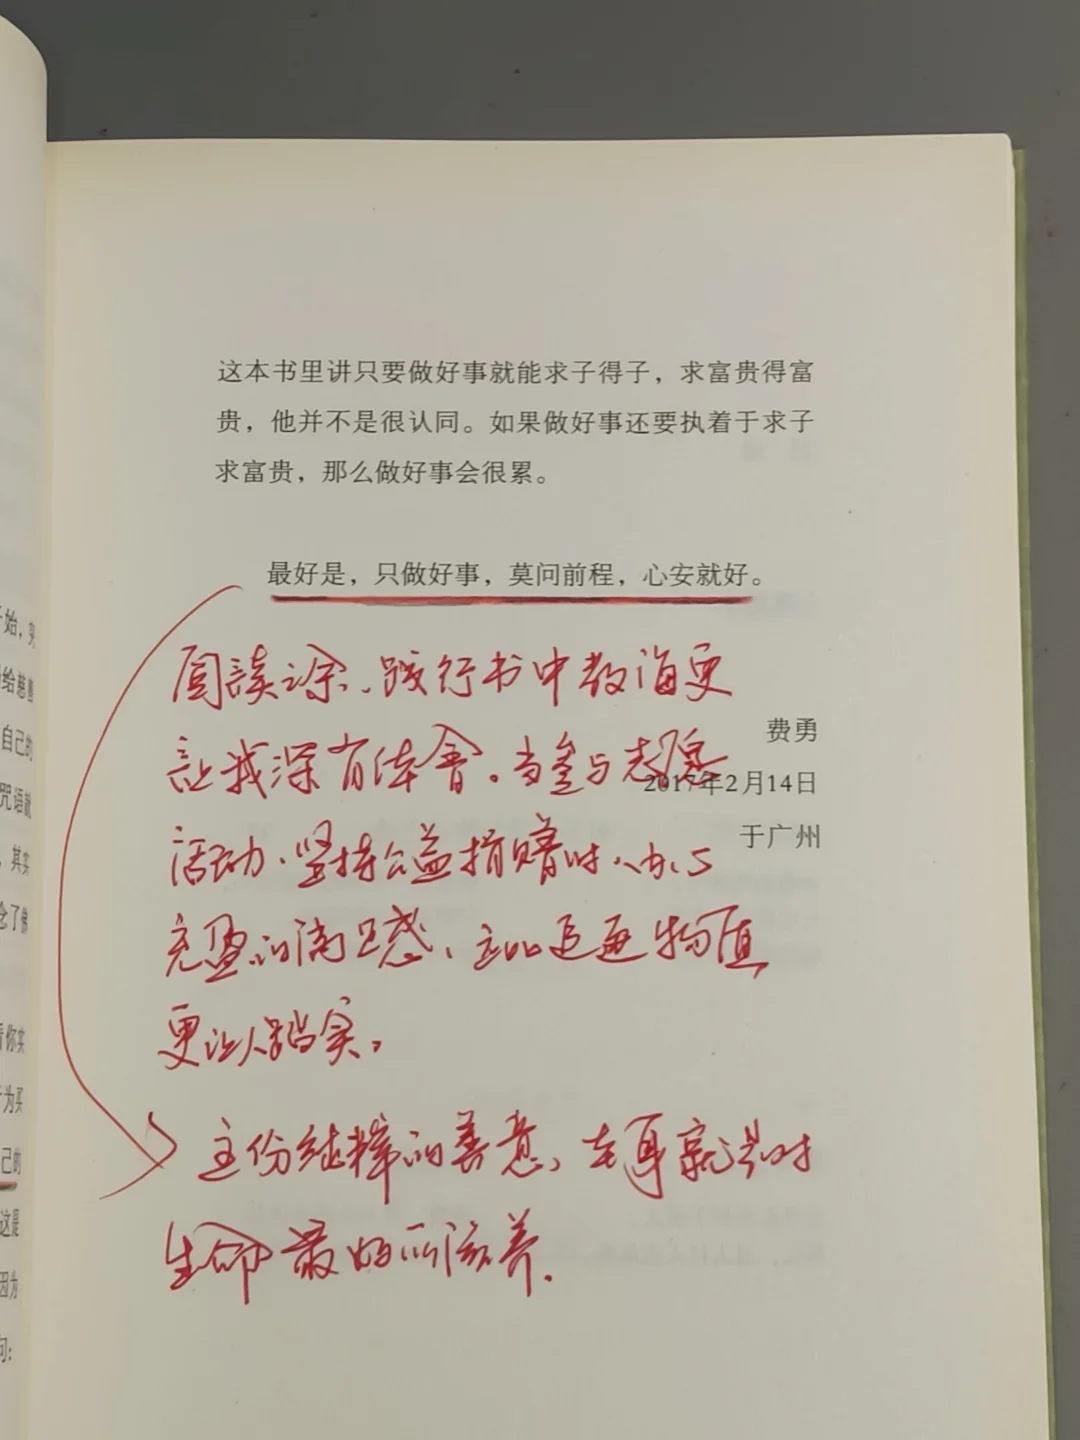 这本书里讲只要做好事就能求子得子，求富贵得富
贵，他并不是很认同。如果做好事还要执着于求子
求富贵，那么做好事会很累。
最好是，只做好事，莫问前程，心安就好。
阅读之余、践行书中教诲更
费勇
让我深有体会。当参与志愿
2017年2月14日
活动、坚持公益捐赠时、内心
于广州
充盈的满足感、远比追逐物质
更让人踏实。
这份纯粹的善意、本身就是对
生命最好的滋养.
开始，
给慈善
自己的
咒语就
，其实
念了佛
看你实
为买
己的
这是
因为
问：